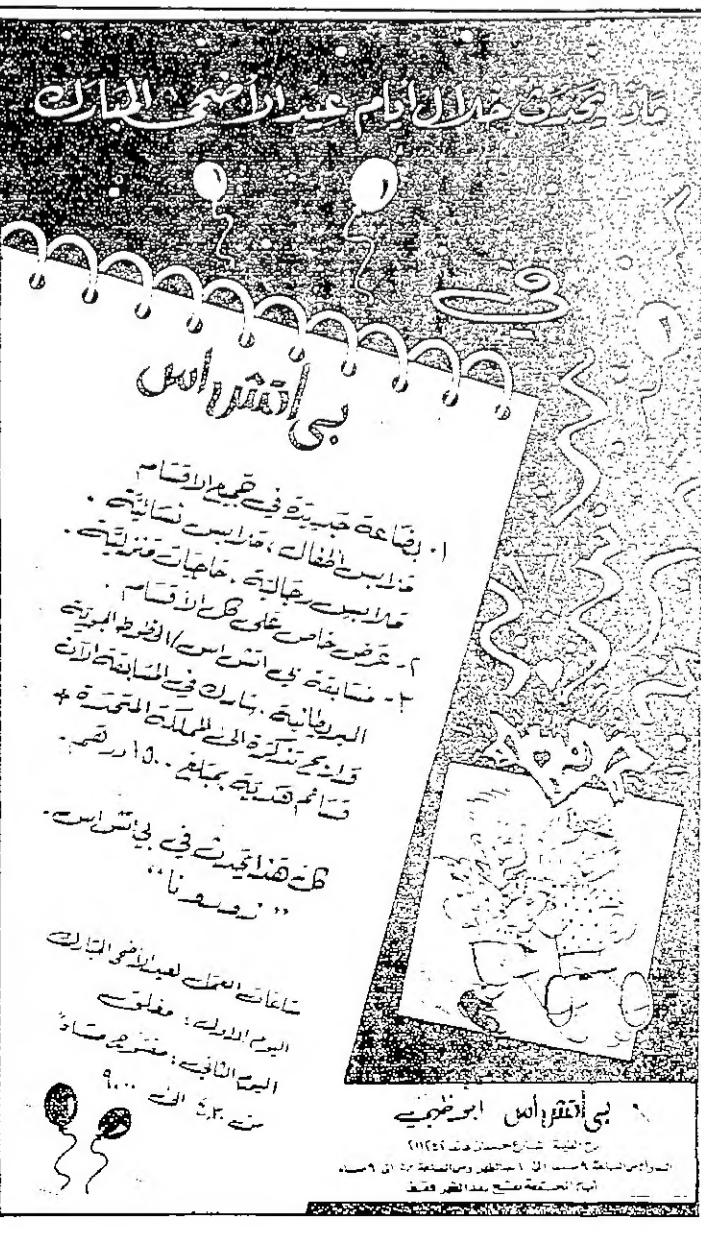 ماذا يحدث خلال أيام عيد الأضحى المبارك
في
بي اتش اس
١- بضاعة جديدة في جميع الاقسام
ملابس اطفال ، ملابس نسائية .
ملابس رجالية . حاجيات منزلية .
٢- عرض خاص على كل الأقسام .
٣- مسابقة بي اتش اس / الخطوط الجوية
البريطانية . شارك في المسابقة الآن
واربح تذكرة الى المملكة المتحدة +
قسائم هدية بمبلغ ١٥٠٠ درهم .
كل هذا يحدث في بي اتش اس .
" زورونا "
ساعات العمل لعيد الأضحى المبارك
اليوم الاول : مغلق
اليوم الثاني : مفتوح مساءً
من ٤,٣٠ الى ٩,٠٠
بي اتش اس ابوظبي
شارع حمدان هاتف
أيام الجمعة نفتح بعد الظهر فقط